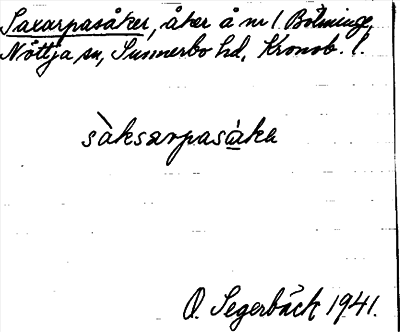 Saxarpasåker, åker å nr 1 Bölminge,
Nöttja sn, Sunnerbo hd, Kronob. l.
sàksarpasåka
O. Segerbäck 1941.